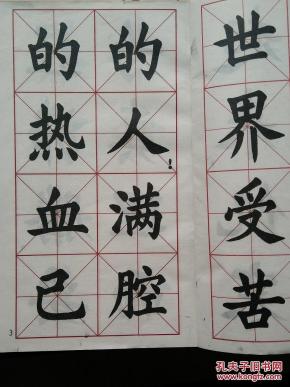 世界受苦
的人!满腔
的热血已
3
孔夫子旧书网